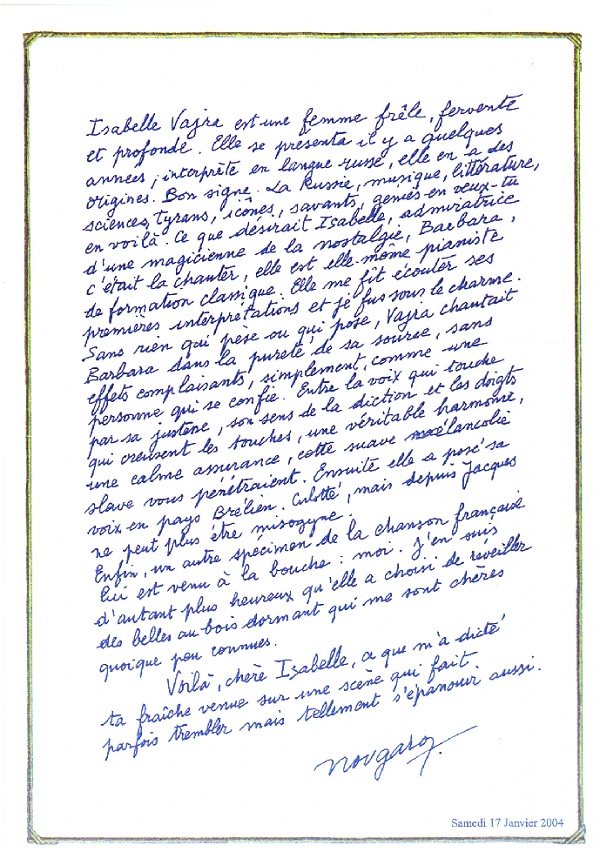 Isabelle Vajra est une femme frêle, fervente
et profonde. Elle se présenta il y a quelques
années ; interprète en langue russe, elle en a des
origines. Bon signe. La Russie, musique, littérature,
sciences, tyrans, icônes, savants, géniés en veux-tu
en voilà. Ce que désirait Isabelle, admiratrice
d'une magicienne de la nostalgie, Barbara,
c'était la chanter, elle est elle-même pianiste
de formation classique. Elle me fit écouter ses
premières interprétations et je fus sous le charme.
Sans rien qui pèse ou qui pose, Vajra chantait
Barbara dans la pureté de sa source, sans
effets complaisants, simplement, comme une
personne qui se confie. Entre la voix qui touche
par sa justesse, son sens de la diction et les doigts
qui creusent les touches, une véritable harmonie,
une calme assurance, cette suave mélancolie
slave vous pénétraient. Ensuite elle a posé sa
voix en pays Brélien. Culotté, mais depuis Jacques
ne peut plus être misogyne.
Enfin, un autre spécimen de la chanson française
lui est venu à la bouche : moi. J'en suis
d'autant plus heureux qu'elle a choisi de reveiller
des belles au bois dormant qui me sont chères
quoique peu connues.
Voilà, chère Isabelle, ce que m'a dicté
ta fraîche venue sur une scène qui fait
parfois trembler mais tellement s'épanouir aussi.
Nougaro
Samedi 17 Janvier 2004